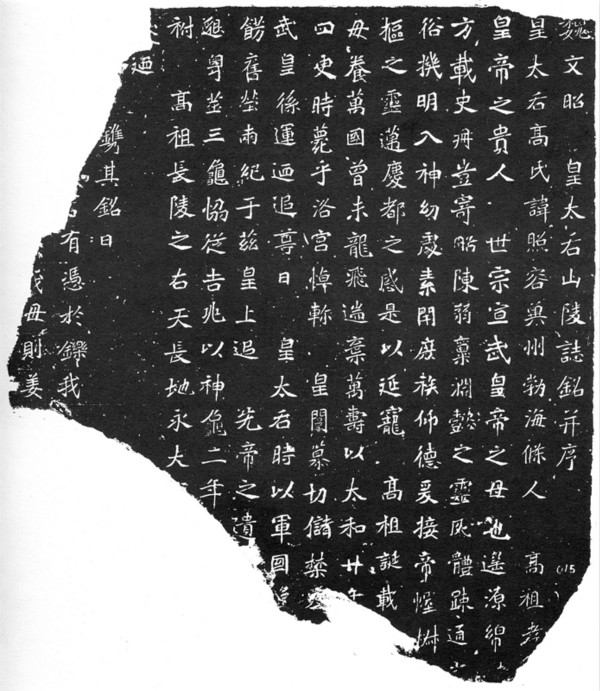 魏文昭 皇太后山陵誌銘并序
皇太后高氏諱照容冀州勃海條人 高祖孝
皇帝之貴人 世宗宣武皇帝之母也遙源綿
方載史冊豈寄略陳弱稟淵懿之靈夙體疎通
俗機明入神幼處素閈庭族仰德爰接帝幄椒
樞之靈邁慶都之感是以延寵 高祖誕載
母養萬國曾未龍飛遄棄萬壽以太和廿
四更時薨乎洛宮悼軫 皇闈慕切儲禁
武皇係運迺追尊曰 皇太后時以軍國
餝舊塋兩紀于茲皇上追 先帝之遺
粵塋三龜協從吉兆以神龜二年
祔 高祖長陵之右天長地永大
迺
鐫其銘曰
有憑於鑠我
母則姜